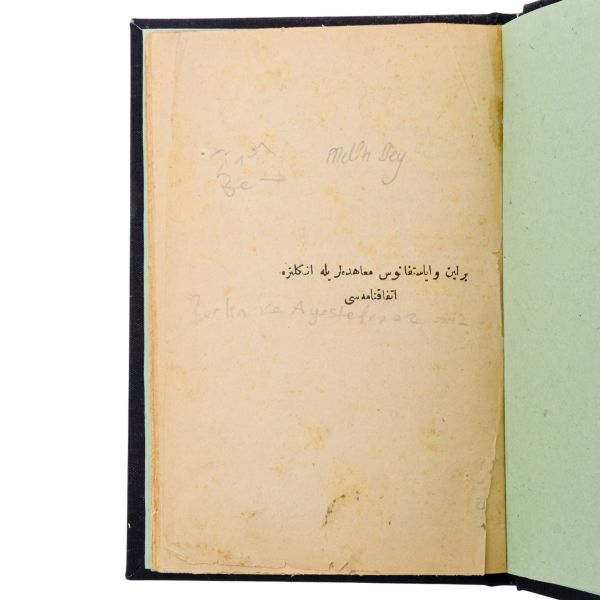 Melih Bey
برلین و ایاستفانوس معاهده‌لریله انکلتره
اتفاقنامه‌سی
Berlin ve Ayestefanoz